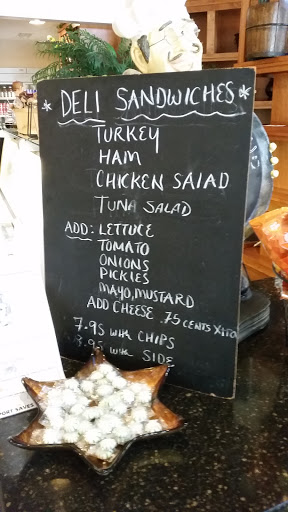 * DELI SANDWICHES *
TURKEY
HAM
CHICKEN SALAD
TUNA SALAD
ADD: LETTUCE
TOMATO
ONIONS
PICKLES
MAYO, MUSTARD
ADD CHEESE .75 CENTS
7.95 CHIPS
8.95 SIDE
PORT SAVES